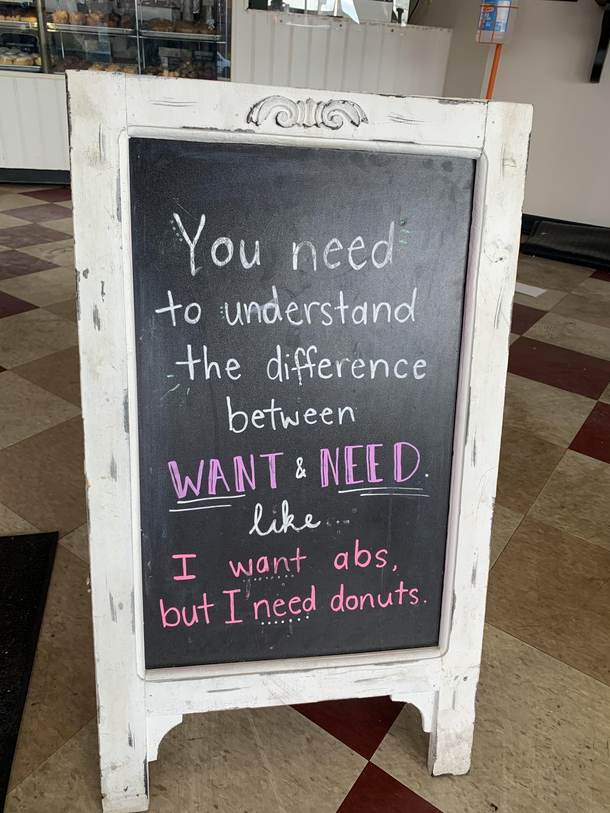 You need
to understand
the difference
between
WANT & NEED.
like...
I want abs,
but I need donuts.